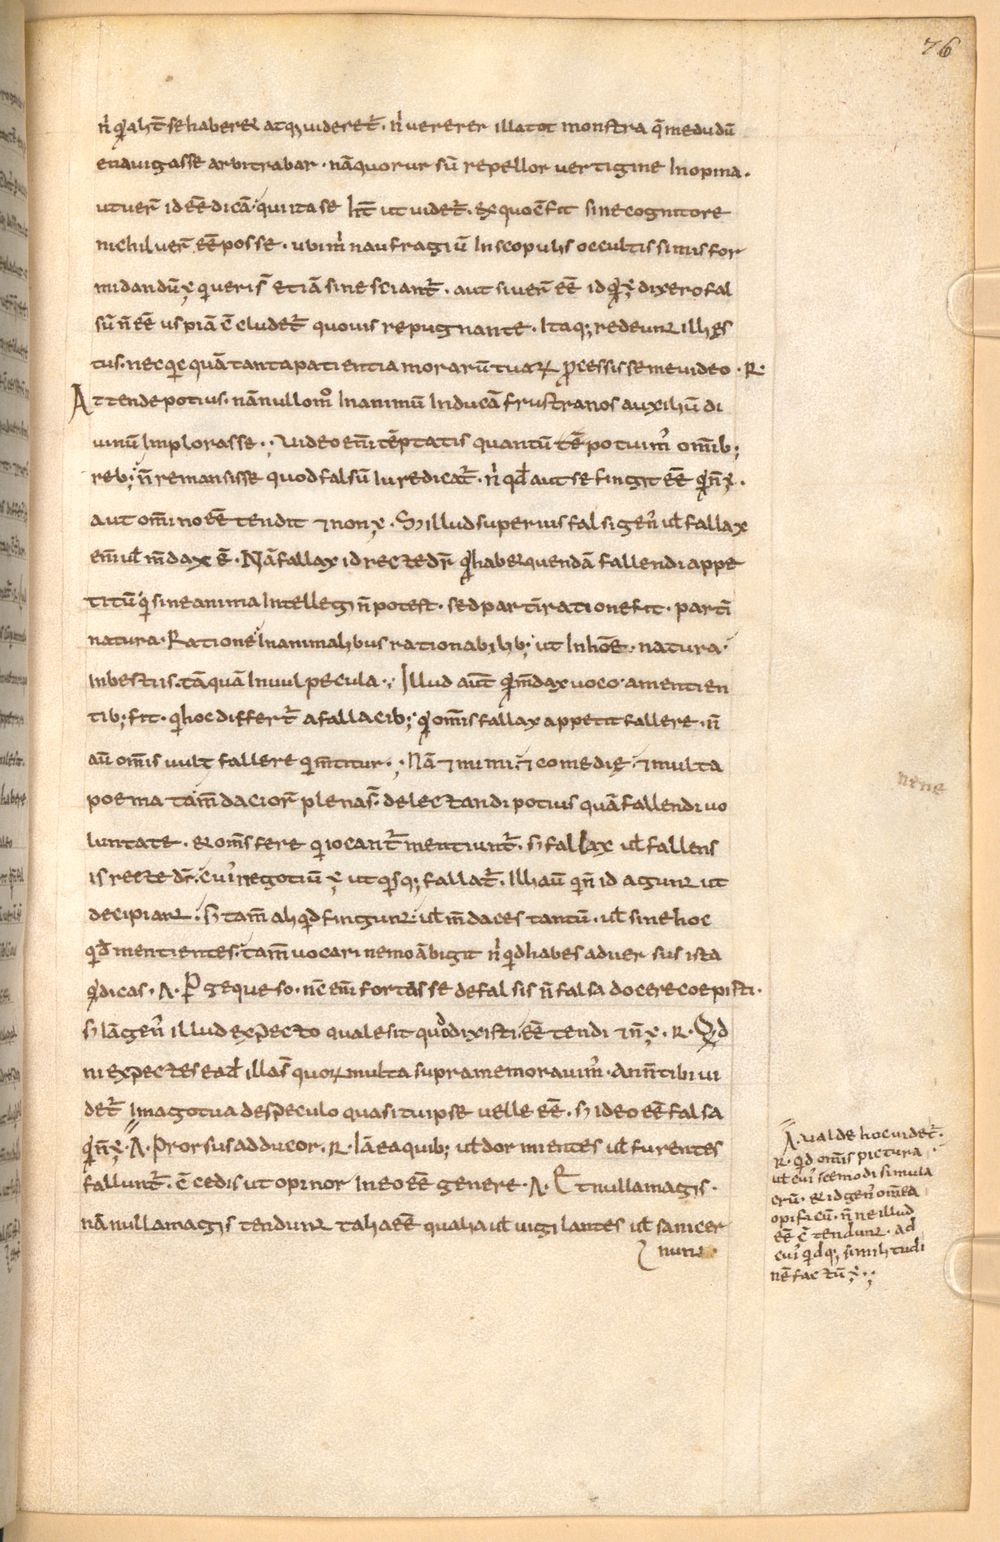 76
nĩ qđ alit̃ se haberet atq; uideret̃. nĩ uererer illa tot monstra q̄ me dudū
enauigasse arbitrabar. nā quo rursū repellor uertigine Inopina.
ut uer̄ id eē dicā. qui ita se ht̄ ut uidet̃. ex quo c̄fit sine cognitore
nichil uer̄ eē posse. ubi m̃ naufragiū In scopulis occultissimis for
midandū ÷ qui ueri s̄ etiā si nesciant̃. aut si uer̄ eē id qđ ÷ dixero fal
sū n̄ eē uspiā c̄cludet̃ quouis repugnante. Itaq; redeunt illi ęs
tus. nec qc̨ quā tanta patientia morarū tuarum ꝓcessisse me uideo. R.
Attende potius. nā nullo mō In animū Inducā frustra nos auxiliū di
uinū Implorasse.; Video eni tēptatis quantū tē potuim̃ omib;
reb; n̄ remansisse quod falsū Iure dicat̃. nĩ qđ aut se fingit eē qđ n̄ ÷.
aut omino eē tendit & non ÷. S; illud superius falsi gen̄ ul̄ fallax
eni ul̄ m̄dax ē. Nā fallax id recte dr̄ qđ habet quendā fallendi appe
titū. qi sine anima Intellegi n̄ potest. sed parti ratione fit. parti
natura. Ratione In animalibus rationabilib; ut In hoē. natura.
In bestiis. tāquā In uulpecula.; Illud aut̄ qđ m̄dax uoco. a mentien
tib; fit. qi hoc differt̃ a fallacib; qđ om̄is fallax appetit fallere. n̄
aū om̄is uult fallere qi m̄titur.; Nā & mimi & comedię & multa
poemata m̄dacior̄ plena s̄. delectandi potius quā fallendi uo
luntate. & om̄s fere qi iocant̃ mentiunt̃. S; fallax ul̄ fallens
is recte dr̄. cui negotiū ÷ ut qisq; fallat̃. Illi aū qi n̄ id agunt ut
decipiant. s; tam̄ aliqd fingunt. ul̄ m̄daces tantū. ul̄ si ne hoc
qid̄ mentientes. tam̄ uocari nemo ābigit nĩ qd habes aduersus ista
qđ dicas. A. Perge queso. nc̄ eni fortasse de falsis n̄ falsa docere coepisti.
S; Iā gen̄ illud expecto quale sit quod dixisti. eē tendit & n̄ ÷. R. Qd
ni expectes eađ illa s̄ quor̄ multa supra memorauim̃. An n̄ tibi ui
det̃ Imago tua de speculo quasi tu ipse uelle eē. S; ideo eē falsa
qđ n̄ ÷. A. Prorsus adducor. R. Iā ea quib; ul̄ dormientes ul̄ furentes
fallunt̃. c̄cedis ut opinor In eo eē genere. A. Et nulla magis.
nā nulla magis tendunt talia eē qualia ul̄ uigilantes ul̄ sani cer
nunt.
A. ualde hoc uidet̃.
R. qd om̄is pictura
ul̄ cuiuscemodi simula
crū. & id gen̄ om̄ea
opificū. n̄ne illud
eē c̄tendunt. ad
cui qdq; similitudi
nē factū ÷.;